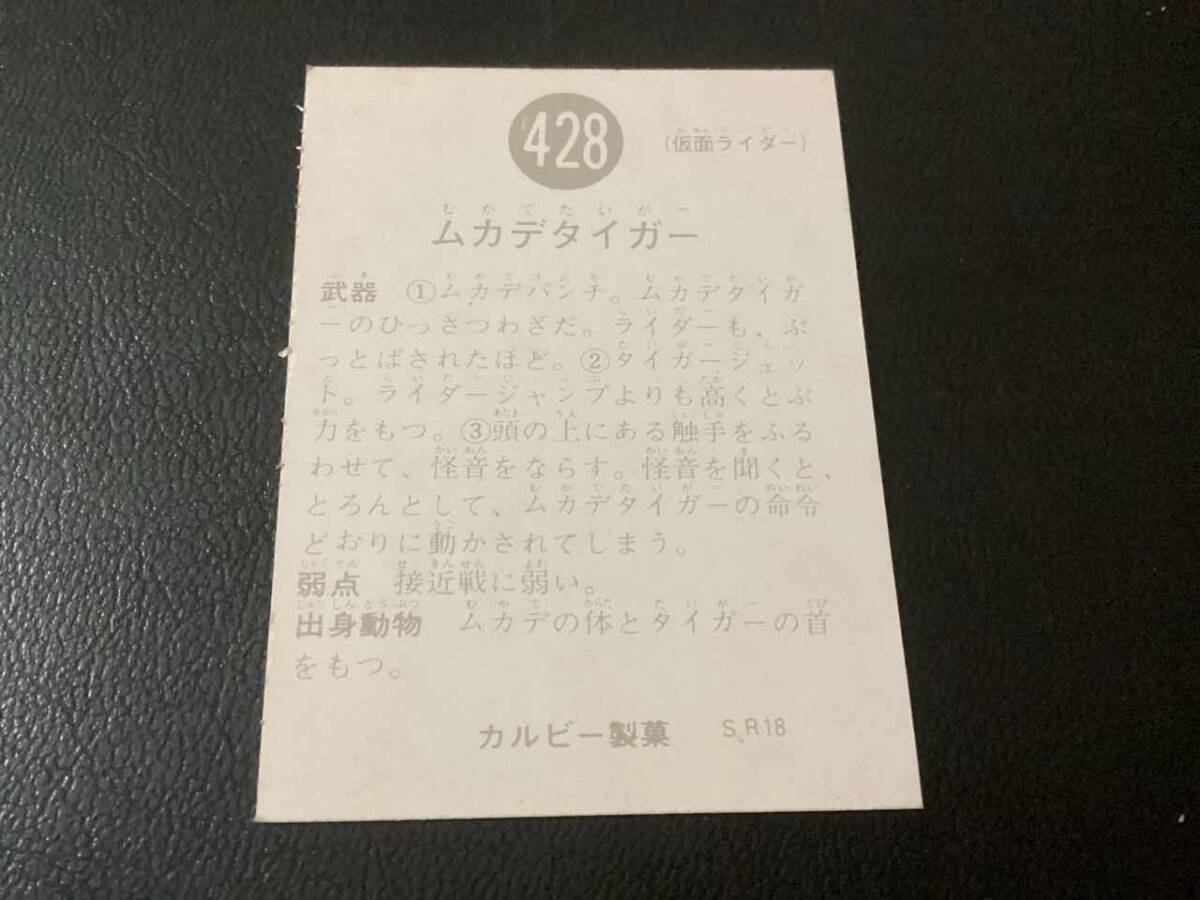 428
(仮面ライダー)
ムカデタイガー
武器 ①ムカデパンチ。ムカデタイガ
ーのひっさつわざだ。ライダーも、ぶ
っとばされたほど。②タイガージェッ
ト。ライダージャンプよりも高くとぶ
力をもつ。③頭の上にある触手をふる
わせて、怪音をならす。怪音を聞くと、
とろんとして、ムカデタイガーの命令
どおりに動かされてしまう。
弱点 接近戦に弱い。
出身動物 ムカデの体とタイガーの首
をもつ。
カルビー製菓 S.R18